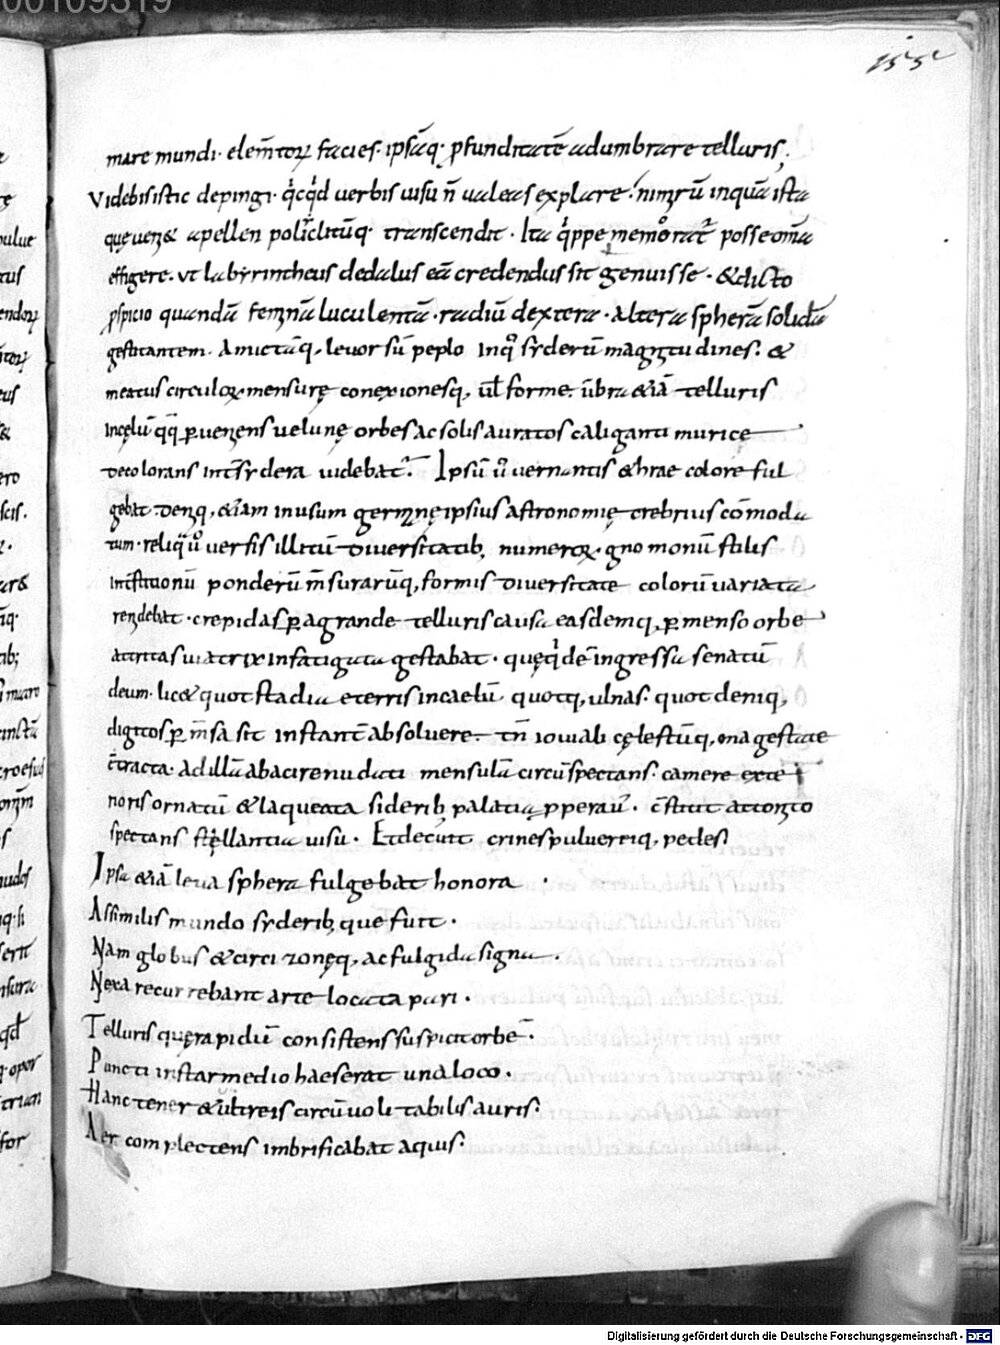 00109319
155
mare mundi· elem̄toꝝ facies· ipsāq· ꝓfunditatē adumbrare telluris;
Videbis istic depingi· q̇cq̇d uerbis uisu n̄ ualeas explare! nimirū inquā ista
quę uenit apellen policlitūq· transcendit· Ita q̇ppe memorat᷑ posse om̄a
effigere· ut labyrintheus dedalus eā credendus sit genuisse· & dicto
ꝓspicio quandā feminā luculentā· radiū dextera· altera spherā solidā
gestitantem· Amictāq, leuorsū peplo inq° syderū magnitudines· &
meatus circuloꝝ mensurę conexionesq, ul̄ formę· ūbra &iā telluris
in cęlū q̄q̄ ꝑueniens uel lunę orbes ac solis auratos caliganti murice
decolorans int̄ sydera uidebat᷑· Ipsū ū uernantis &hrae colore ful
gebat deniq, &iam in usum germanę ipsius astronomię crebrius cōmoda
tum· reliq̄ ů uersis illitū diuersitatib, numeroꝝ· gnomonū stilis
int̄stitionū ponderū m̄suraruq, formis diuersitate colorū uariata
renidebat· crepidas ꝑagrande telluris causa easdemq, ꝑmenso orbe
attritas uiatrix infatigata gestabat· quęq̇dē ingressa senatū
deum· lic& quot stadia e terris in caelū quotq, ulnas· quot deniq,
digitos ꝑ m̄sa sit instant̄ absoluere· tn̄ iouiali cęlestūq, magestate
c̄tracta· ad illā abaci renudati mensulā circūspectans· camere exte
rioris ornatū & laqueata siderib, palatia ꝓperau᷑· c̄stitit attonito
spectans stellantia uisu· Et decuit crines puluereiq, pedes·
Ipsa &iā leua sphera fulgebat honora·
Assimilis mundo syderib, que fuit·
Nam globus & circi zonęq, ac fulgida signa·
Nexa recurrebant arte locata pari·
Telluris quę rapidū consistens suspicit orbē·
Puncti instar medio haeserat una loco·
Hanc tener & uitreis circū uolitabilis auris·
Aer complectens imbrificabat aquis·
Digitalisierung gefördert durch die Deutsche Forschungsgemeinschaft - DFG